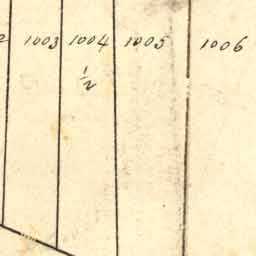 2 1003 1004 1005 1006
1/2